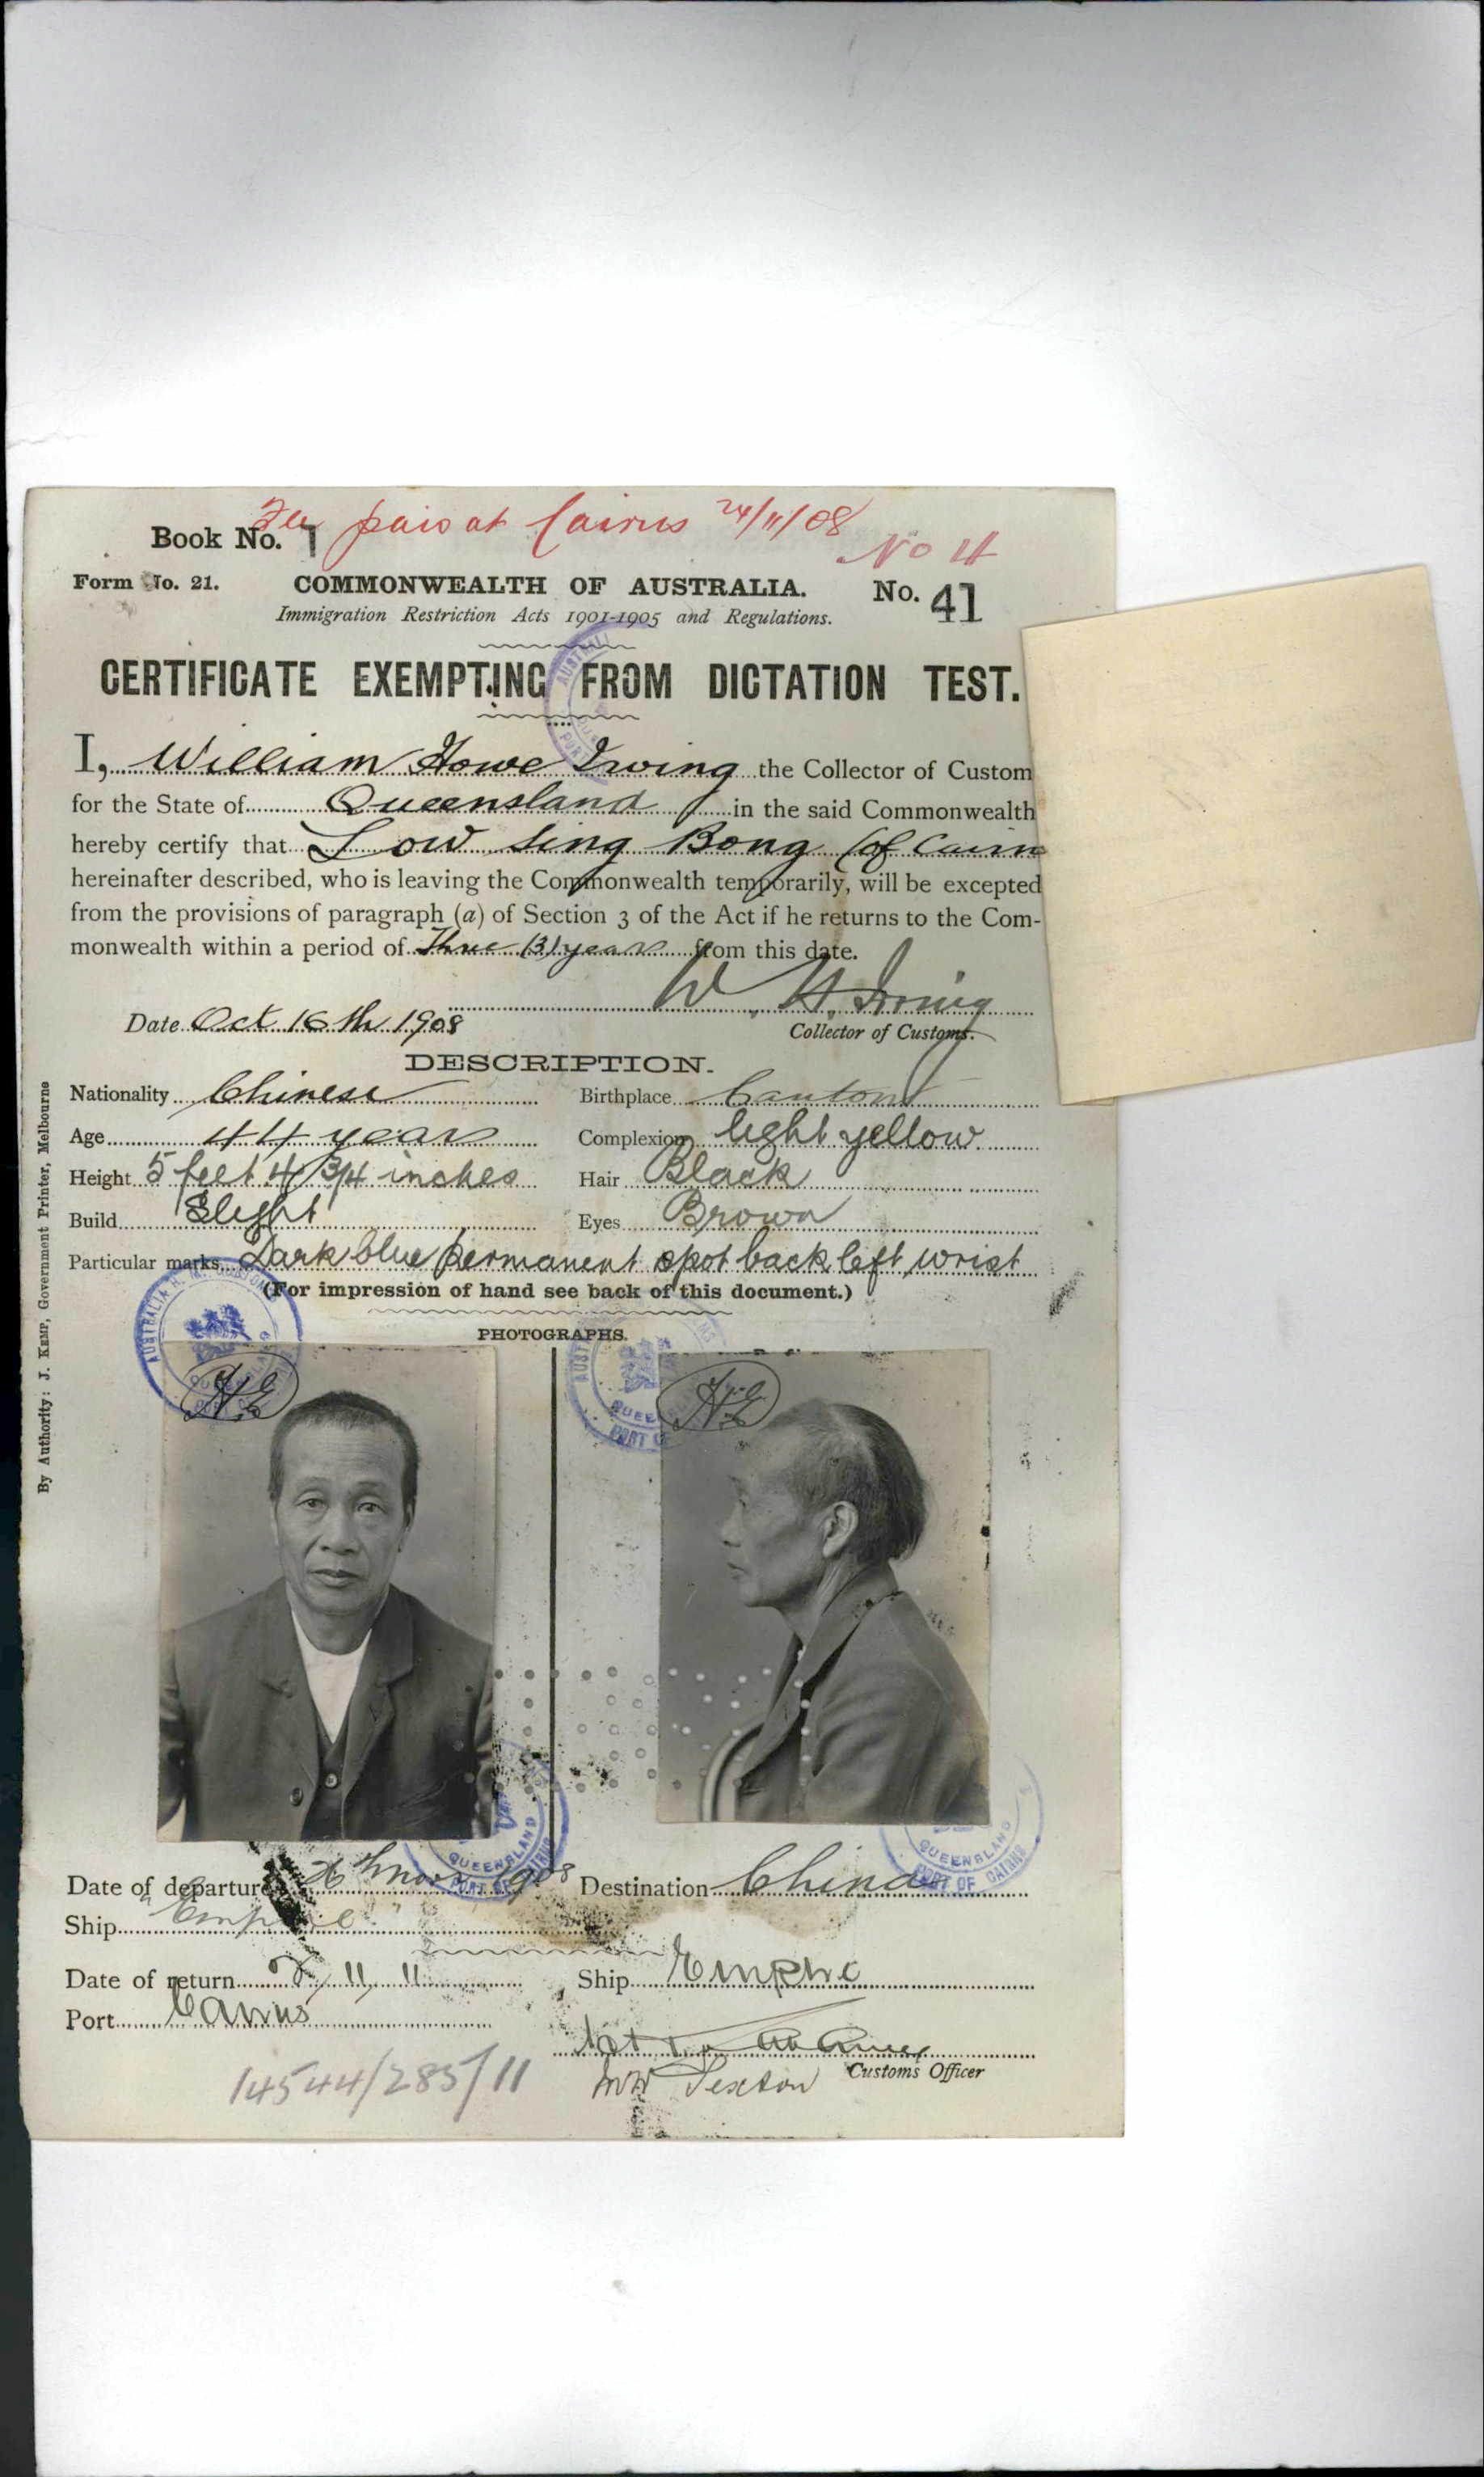 Fee paid at Cairns 24/11/08
Book No. 1
No 4
Form No. 21. COMMONWEALTH OF AUSTRALIA. No. 41
Immigration Restriction Acts 1901-1905 and Regulations.
CERTIFICATE EXEMPTING FROM DICTATION TEST.
I, William Howe Irving the Collector of Custom
for the State of Queensland in the said Commonwealth
hereby certify that Low Sing Bong (of Cairn
hereinafter described, who is leaving the Commonwealth temporarily, will be excepted
from the provisions of paragraph (a) of Section 3 of the Act if he returns to the Com-
monwealth within a period of Three (3) years from this date.
W. H. Irving
Date Oct 16th 1908
Collector of Customs.
DESCRIPTION.
Nationality Chinese Birthplace Canton
Age 44 years Complexion light yellow
Height 5 feet 4 3/4 inches Hair Black
Build Slight Eyes Brown
Particular marks Dark blue permanent spot back left wrist
(For impression of hand see back of this document.)
PHOTOGRAPHS.
AUSTRALIA H.M. CUSTOMS QUEENSLAND PORT OF
AUST QUEENSLAND PORT OF
H.E
H.E
QUEENSLAND PORT OF CAIRNS
QUEENSLAND PORT OF CAIRNS
Date of departure Nov 1908 Destination China
Ship "Empire"
Date of return 11, 11 Ship Empire
Port Cairns
Customs Officer
14544/285/11
MW Sexton
By Authority: J. KEMP, Government Printer, Melbourne